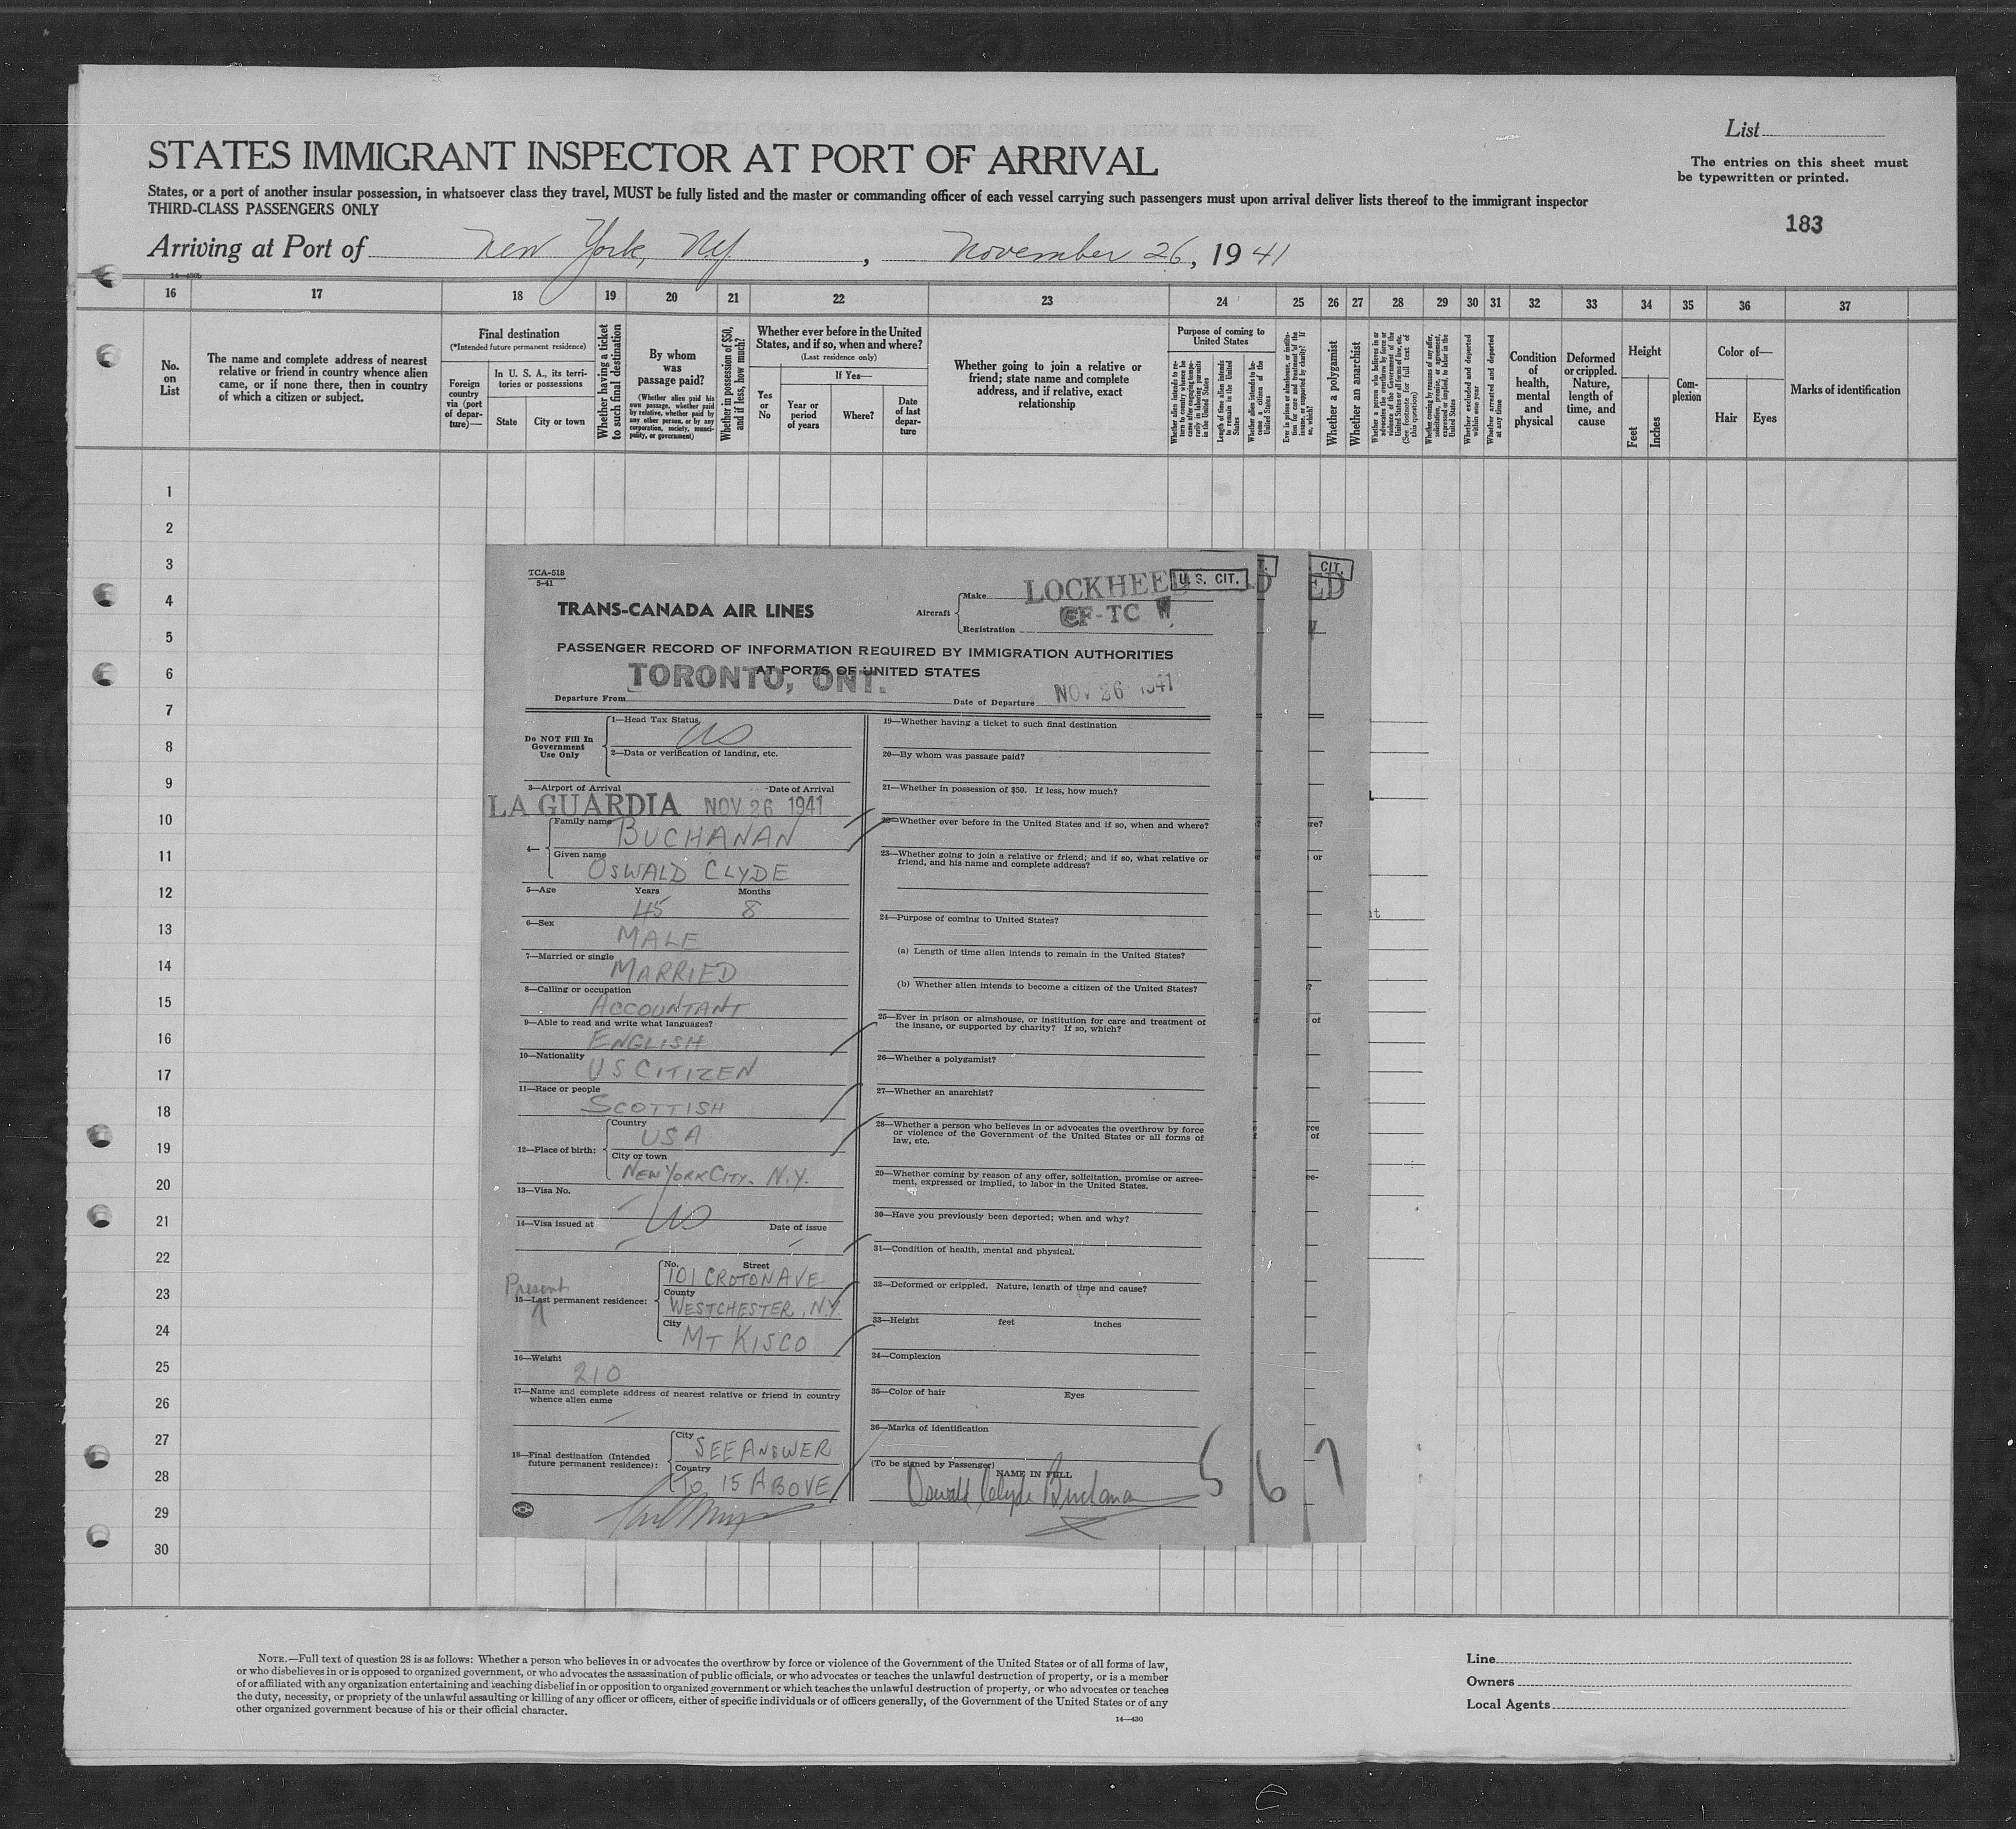 List
STATES IMMIGRANT INSPECTOR AT PORT OF ARRIVAL
The entries on this sheet must
be typewritten or printed.
States, or a port of another insular possession, in whatsoever class they travel, MUST be fully listed and the master or commanding officer of each vessel carrying such passengers must upon arrival deliver lists thereof to the immigrant inspector
THIRD-CLASS PASSENGERS ONLY
183
Arriving at Port of New York, NY, November 26, 1941
14-430b
16 17 18 19 20 21 22 23 24 25 26 27 28 29 30 31 32 33 34 35 36 37
No. on List
The name and complete address of nearest relative or friend in country whence alien came, or if none there, then in country of which a citizen or subject.
Final destination
(*Intended future permanent residence)
Foreign country via (port of departure)—
In U. S. A., its territories or possessions
State
City or town
Whether having a ticket to such final destination
By whom was passage paid?
(Whether alien paid his own passage, whether paid by relative, whether paid by any other person, or by any corporation, society, municipality, or government)
Whether in possession of $50, and if less, how much?
Whether ever before in the United States, and if so, when and where?
(Last residence only)
Yes or No
If Yes—
Year or period of years
Where?
Date of last departure
Whether going to join a relative or friend; state name and complete address, and if relative, exact relationship
Purpose of coming to United States
Whether alien intends to return to country whence he came after engaging temporarily in laboring pursuits in the United States
Length of time alien intends to remain in the United States
Whether alien intends to become a citizen of the United States
Ever in prison or almshouse, or institution for care and treatment of the insane, or supported by charity? If so, which?
Whether a polygamist
Whether an anarchist
Whether a person who believes in or advocates the overthrow by force or violence of the Government of the United States or all forms of law, etc. (See footnote for full text of this question)
Whether coming by reasons of any offer, solicitation, promise, or agreement, expressed or implied, to labor in the United States
Whether excluded and deported within one year
Whether arrested and deported at any time
Condition of health, mental and physical
Deformed or crippled. Nature, length of time, and cause
Height
Feet
Inches
Complexion
Color of—
Hair
Eyes
Marks of identification
1
2
3
4
5
6
7
8
9
10
11
12
13
14
15
16
17
18
19
20
21
22
23
24
25
26
27
28
29
30
TCA-518
5-41
TRANS-CANADA AIR LINES
Aircraft
Make LOCKHEED
U. S. CIT.
CIT.
ED
Registration CF-TC W
PASSENGER RECORD OF INFORMATION REQUIRED BY IMMIGRATION AUTHORITIES
AT PORTS OF UNITED STATES
Departure From TORONTO, ONT.
Date of Departure NOV 26 1941
Do NOT Fill In
Government
Use Only
1—Head Tax Status US
2—Data or verification of landing, etc.
3—Airport of Arrival Date of Arrival
LA GUARDIA NOV 26 1941
4—
Family name BUCHANAN
Given name OSWALD CLYDE
5—Age Years Months
45 8
6—Sex
MALE
7—Married or single
MARRIED
8—Calling or occupation
ACCOUNTANT
9—Able to read and write what languages?
ENGLISH
10—Nationality
US CITIZEN
11—Race or people
SCOTTISH
12—Place of birth:
Country
USA
City or town
NEW YORK CITY. N.Y.
13—Visa No.
14—Visa issued at US Date of issue
Present
15—Last permanent residence:
No. Street
101 CROTON AVE
County
WESTCHESTER, N.Y.
City
MT KISCO
16—Weight
210
17—Name and complete address of nearest relative or friend in country
whence alien came
18—Final destination (Intended
future permanent residence):
City
SEE ANSWER
Country
TO 15 ABOVE
19—Whether having a ticket to such final destination
20—By whom was passage paid?
21—Whether in possession of $50. If less, how much?
22—Whether ever before in the United States and if so, when and where?
23—Whether going to join a relative or friend; and if so, what relative or
friend, and his name and complete address?
24—Purpose of coming to United States?
(a) Length of time alien intends to remain in the United States?
(b) Whether alien intends to become a citizen of the United States?
25—Ever in prison or almshouse, or institution for care and treatment of
the insane, or supported by charity? If so, which?
26—Whether a polygamist?
27—Whether an anarchist?
28—Whether a person who believes in or advocates the overthrow by force
or violence of the Government of the United States or all forms of
law, etc.
29—Whether coming by reason of any offer, solicitation, promise or agree-
ment, expressed or implied, to labor in the United States.
30—Have you previously been deported; when and why?
31—Condition of health, mental and physical.
32—Deformed or crippled. Nature, length of time and cause?
33—Height feet inches
34—Complexion
35—Color of hair Eyes
36—Marks of identification
(To be signed by Passenger)
NAME IN FULL
Oswald Clyde Buchanan
5 6 7
NOTE.—Full text of question 28 is as follows: Whether a person who believes in or advocates the overthrow by force or violence of the Government of the United States or of all forms of law,
or who disbelieves in or is opposed to organized government, or who advocates the assassination of public officials, or who advocates or teaches the unlawful destruction of property, or is a member
of or affiliated with any organization entertaining and teaching disbelief in or opposition to organized government or which teaches the unlawful destruction of property, or who advocates or teaches
the duty, necessity, or propriety of the unlawful assaulting or killing of any officer or officers, either of specific individuals or of officers generally, of the Government of the United States or of any
other organized government because of his or their official character.
14—430
Line
Owners
Local Agents